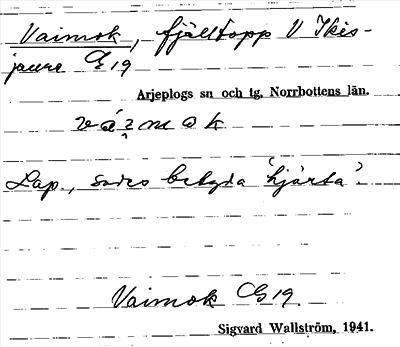 Vaimok, fjälltopp V Ikis-
jaure G 19
Arjeplogs sn och tg, Norrbottens län.
Lap., sades betyda 'hjärta'.
Vaimok G 19.
Sigvard Wallström, 1941.